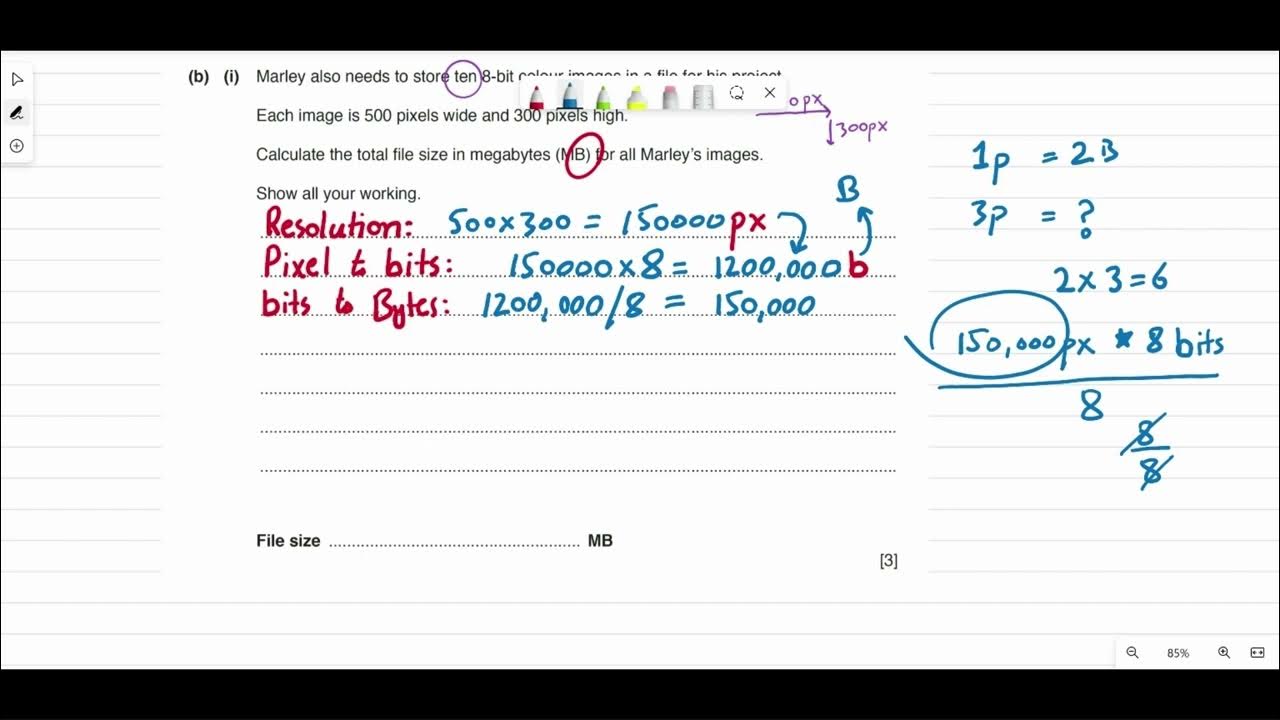 (b) (i) Marley also needs to store ten 8-bit colour images in a file for his project.
Each image is 500 pixels wide and 300 pixels high.
0px
300px
Calculate the total file size in megabytes (MB) for all Marley's images.
Show all your working.
B
Resolution: 500x300 = 150000px
Pixel to bits: 150000x8 = 1200,000b
bits to Bytes: 1200,000/8 = 150,000
File size ........ MB
[3]
1p = 2B
3p = ?
2 x 3 = 6
150,000px * 8 bits
8
8
8
85%